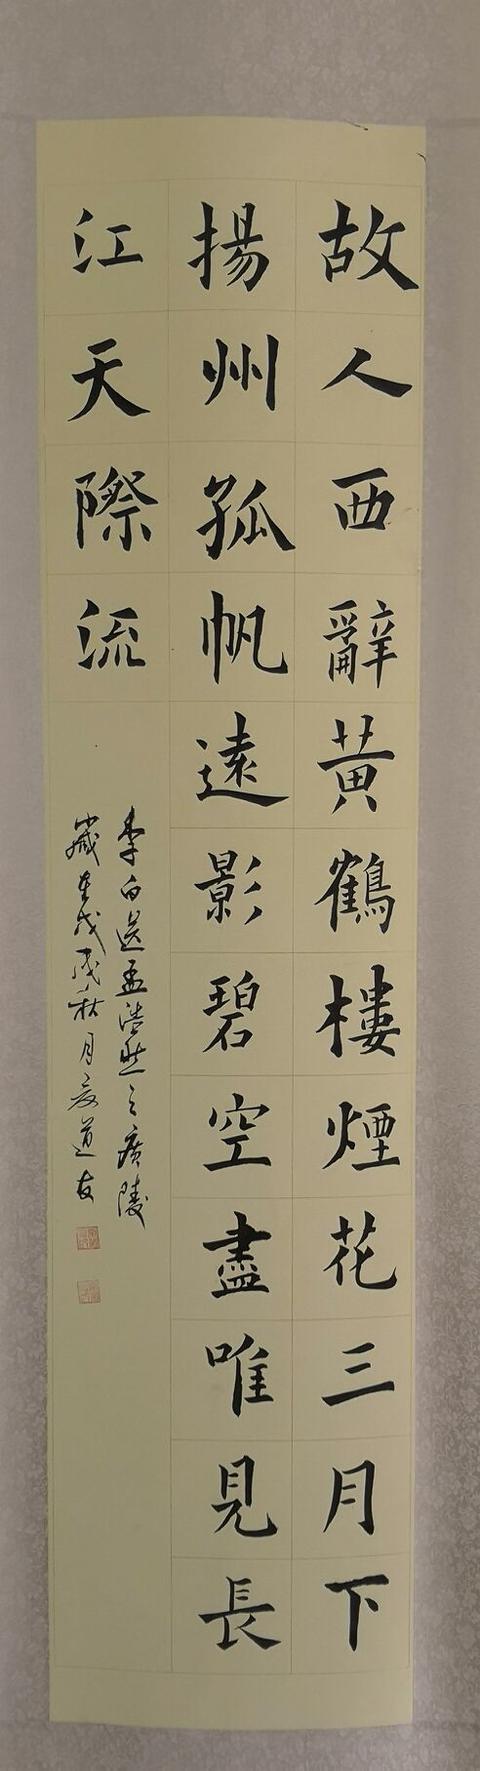 故人西辭黃鶴樓煙花三月下
揚州孤帆遠影碧空盡唯見長
江天際流
李白送孟浩然之廣陵
歲在戊戌秋月 道友